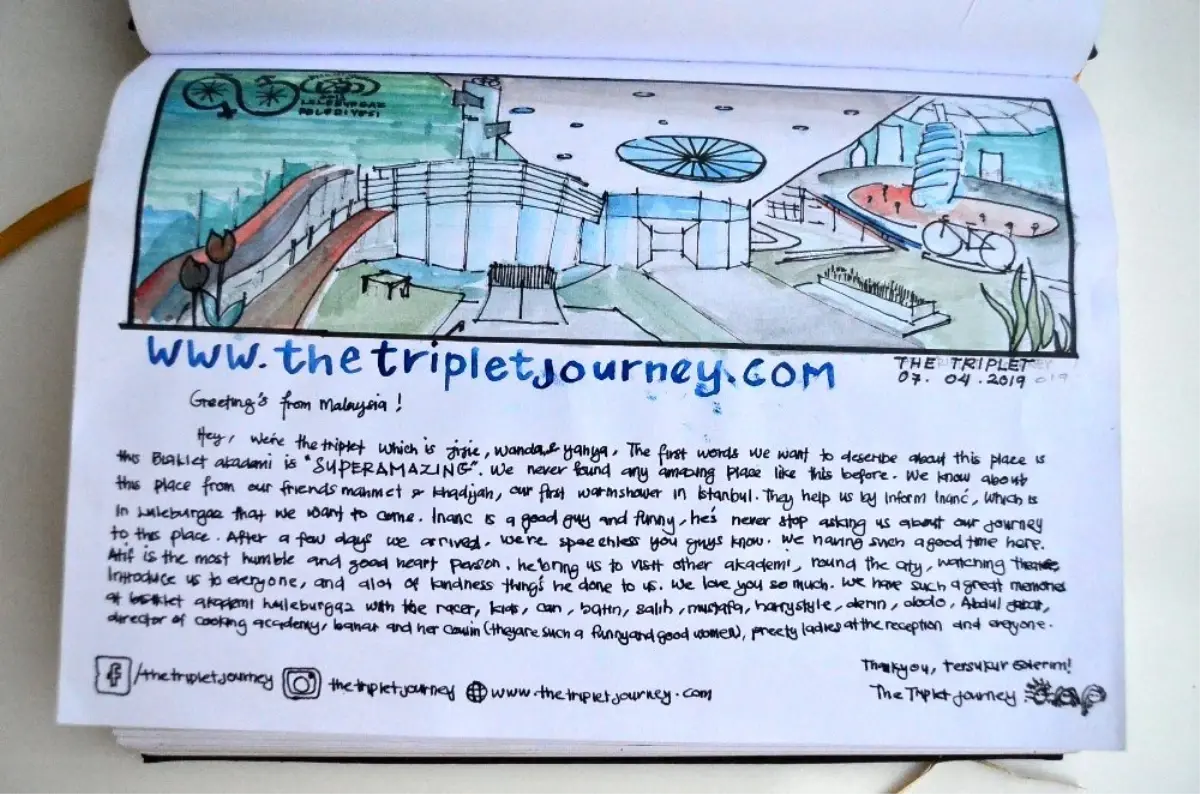 LULEBURGAZ
BELEDIYESI
www.thetripletjourney.com
THE TRIPLET
07. 04. 2019
Greeting's from Malaysia!
Hey, We're the triplet which is jijie, wanda & yahya. The first words we want to describe about this place is
this Bisiklet akademi is "SUPERAMAZING". We never found any amazing place like this before. We know about
this place from our friends mahmet & khadijah, our first warmshower in istanbul. They help us by inform Inanc, which is
in luleburgaz that we want to come. Inanc is a good guy and funny, he's never stop asking us about our journey
to this place. After a few days we arrived, we're speechless you guys know. We having such a good time here.
Atif is the most humble and good heart person. he bring us to visit other akademi, round the city, watching theatre
Introduce us to everyone, and alot of kindness thing's he done to us. We love you so much. We have such a great memories
at bisiklet akademi luleburgaz with the racer, kids, can, batın, salih, mustafa, harrystyle, derin, dodo, Abdul
director of cooking academy, bahar and her cousin (they are such a funny and good women), preety ladies at the reception and everyone.
/thetripletjourney thetripletjourney www.thetripletjourney.com
Thankyou, Tersukur Ederim!
The Triplet journey